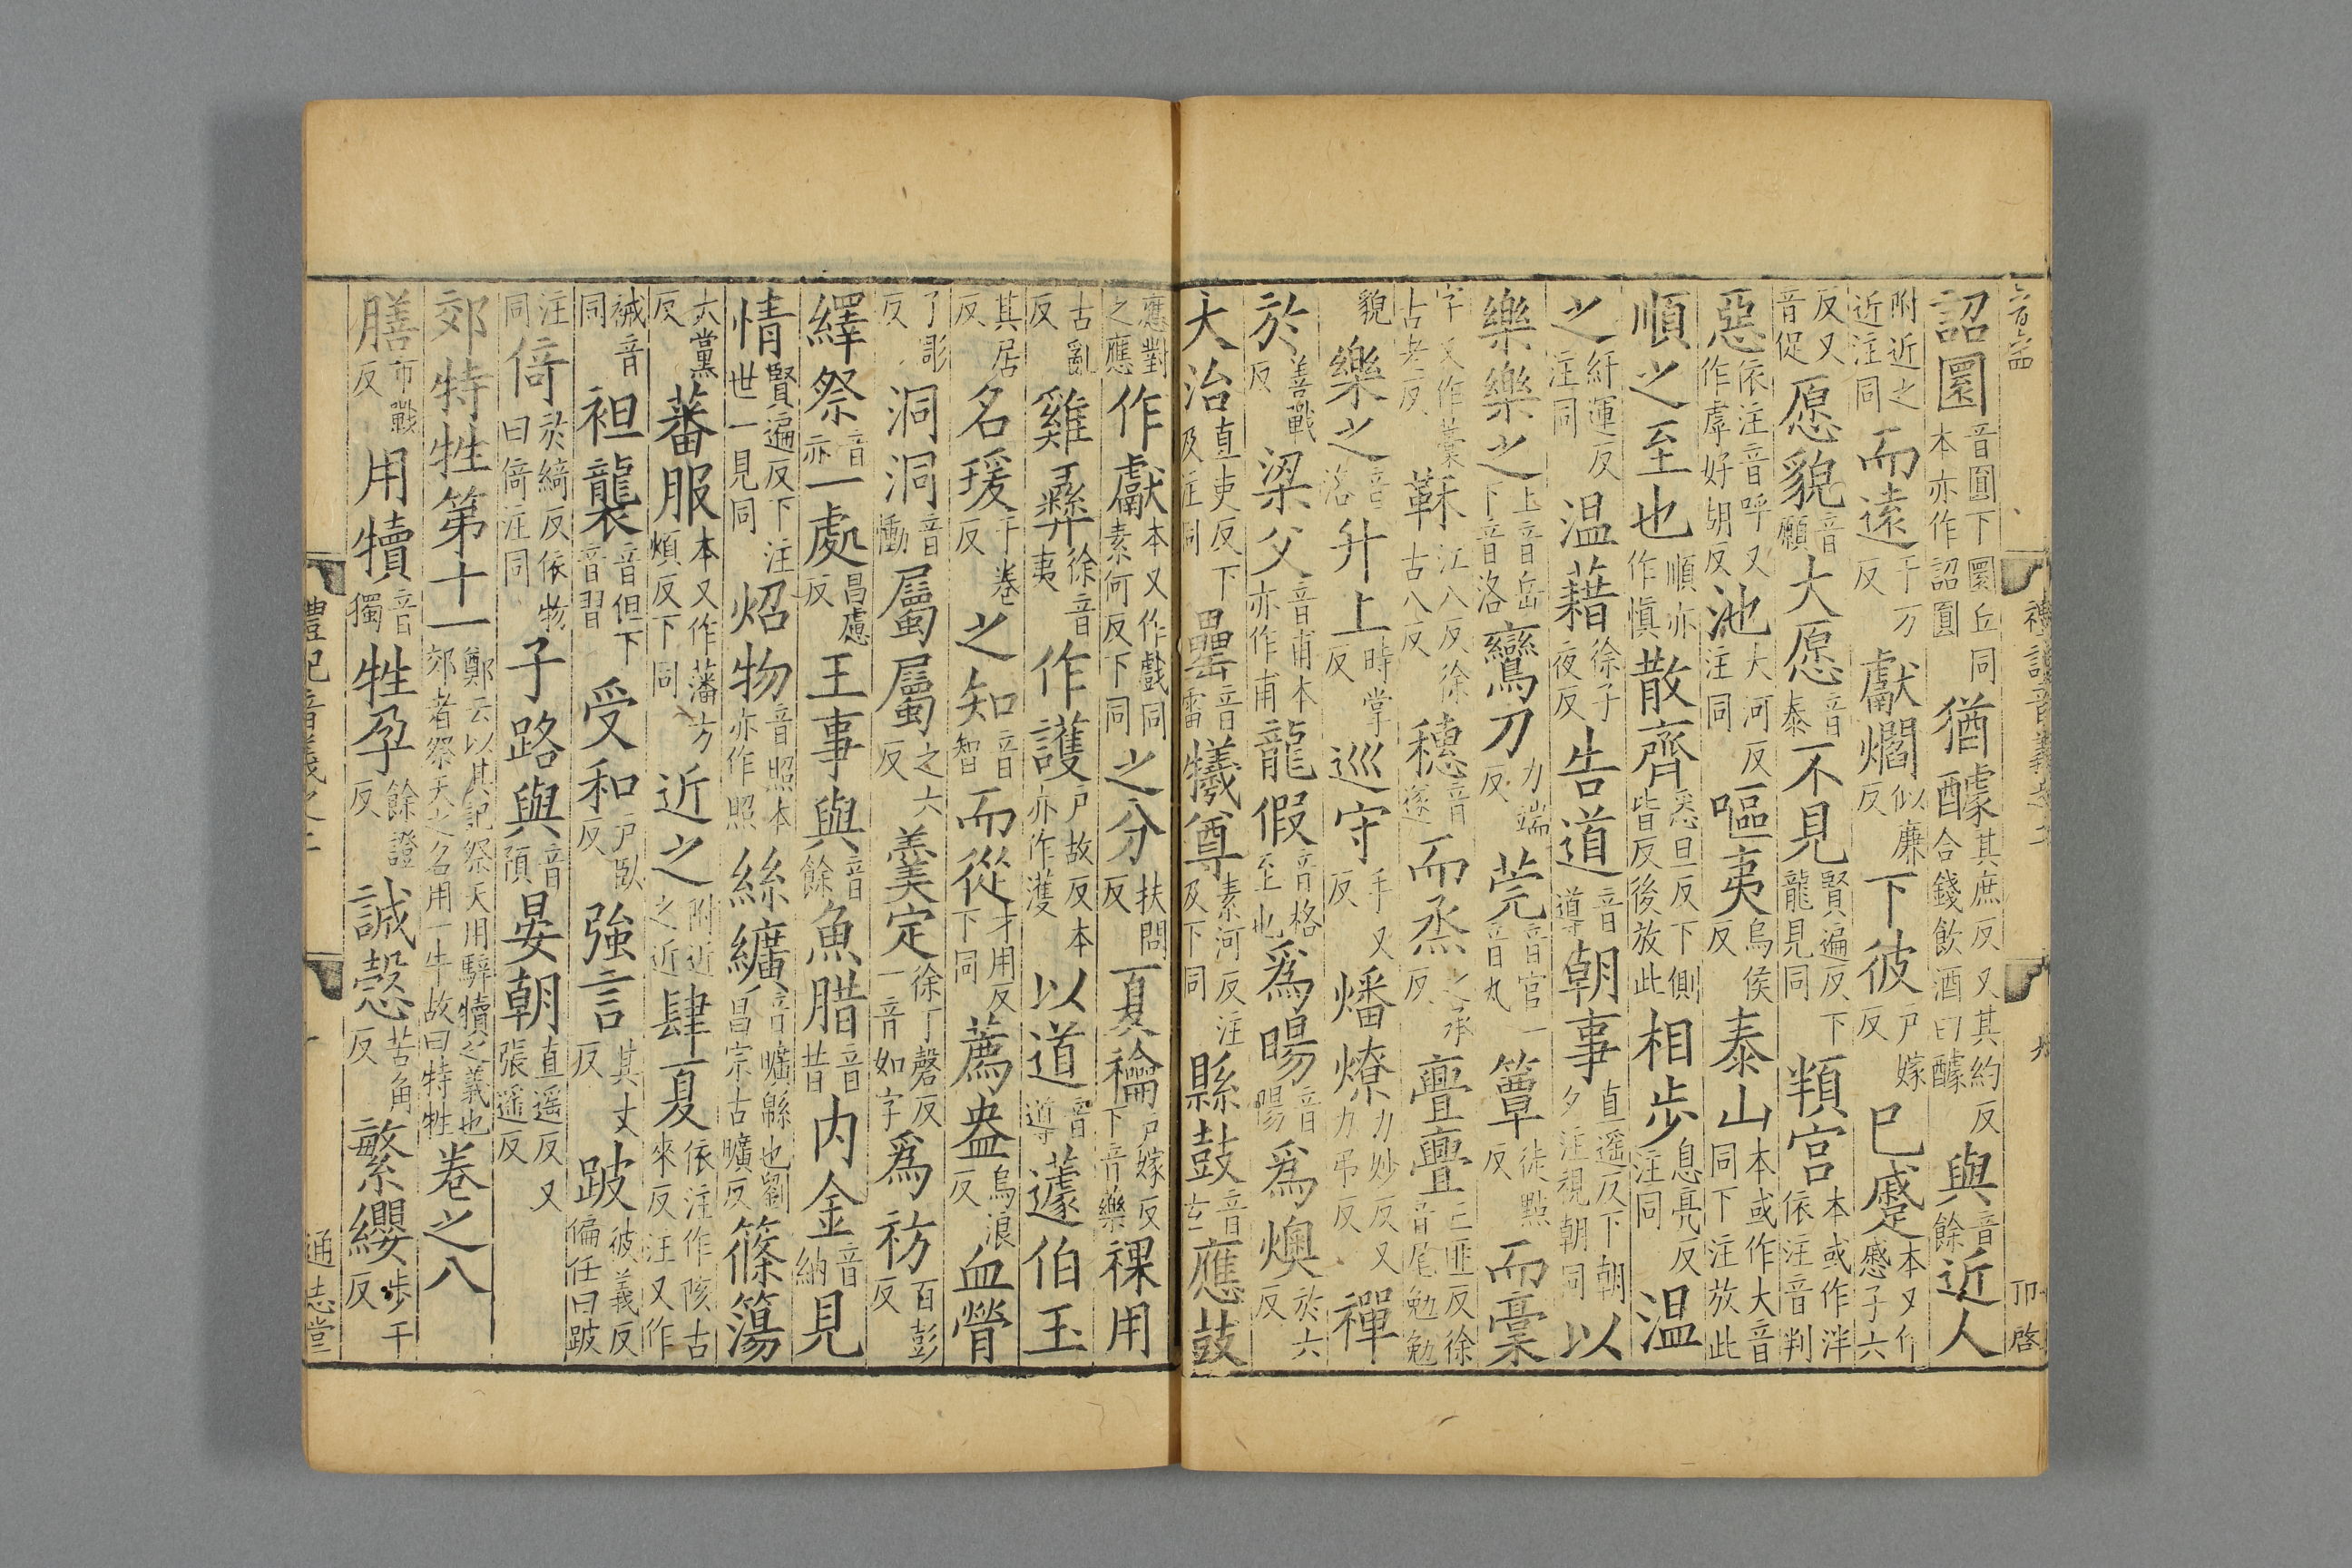 詔圜音圓下圜丘同本亦作詔圓猶醵其庶反又其約反合錢飲酒曰醵與音餘近人
附近之近注同而遠于万反獻爓似廉反下彼戶嫁反巳蹙本又作慼子六
反又音促愿貌音願大愿音泰不見賢遍反下龍見同頖宮本或作泮依注音判
惡依注音呼又作虖好胡反池大河反注同嘔夷烏侯反泰山本或作大音同下注放此
順之至也順亦作慎散齊悉旦反下側皆反後放此相步息亮反注同温
之紆運反注同温藉徐子夜反告道音導朝事直遥反下朝夕注視朝同以
樂樂之上音岳下音洛鸞刀力端反莞音官一音丸簟徒點反而稾
字又作藁古老反鞂江八反徐古八反穗音遂而烝之承反亹亹亡匪反徐音尾勉勉
貌樂之音洛升上時掌反巡守手又反燔燎力妙反又力弔反禪
於善戰反梁父音甫本亦作甫龍假音格至也爲暘音陽爲燠於六反
大治直吏反下及注同罍音雷犧尊素河反注及下同縣鼓音玄應鼓
應對之應作獻本又作戲同素何反下同之分扶問反夏禴戶嫁反下音樂祼用
古亂反雞彝徐音夷作護戶故反本亦作濩以道音導蘧伯玉
其居反名瑗于卷反之知音智而從才用反下同薦盎烏浪反血膋
了彫反洞洞音慟屬屬之六反羹定徐丁磬反一音如字爲祊百彭反
繹祭音亦一處昌慮反王事與音餘魚腊音昔内金音納見
情賢遍反下注世一見同炤物音照本亦作照絲纊音曠緜也劉昌宗古曠反篠簜
大黨反蕃服本又作藩方煩反下同近之附近之近肆夏依注作陔古來反注又作
祴音同袒襲音但下音習受和戶臥反強言其丈反跛彼義反偏任曰跛
注同倚於綺反依物曰倚注同子路與音預晏朝直遥反又張遥反
郊特牲第十一鄭云以其記祭天用騂犢之義也郊者祭天之名用一牛故曰特牲卷之八
膳市戰反用犢音獨牲孕餘證反誠愨苦角反繁纓步干反
禮記音義之二
通志堂